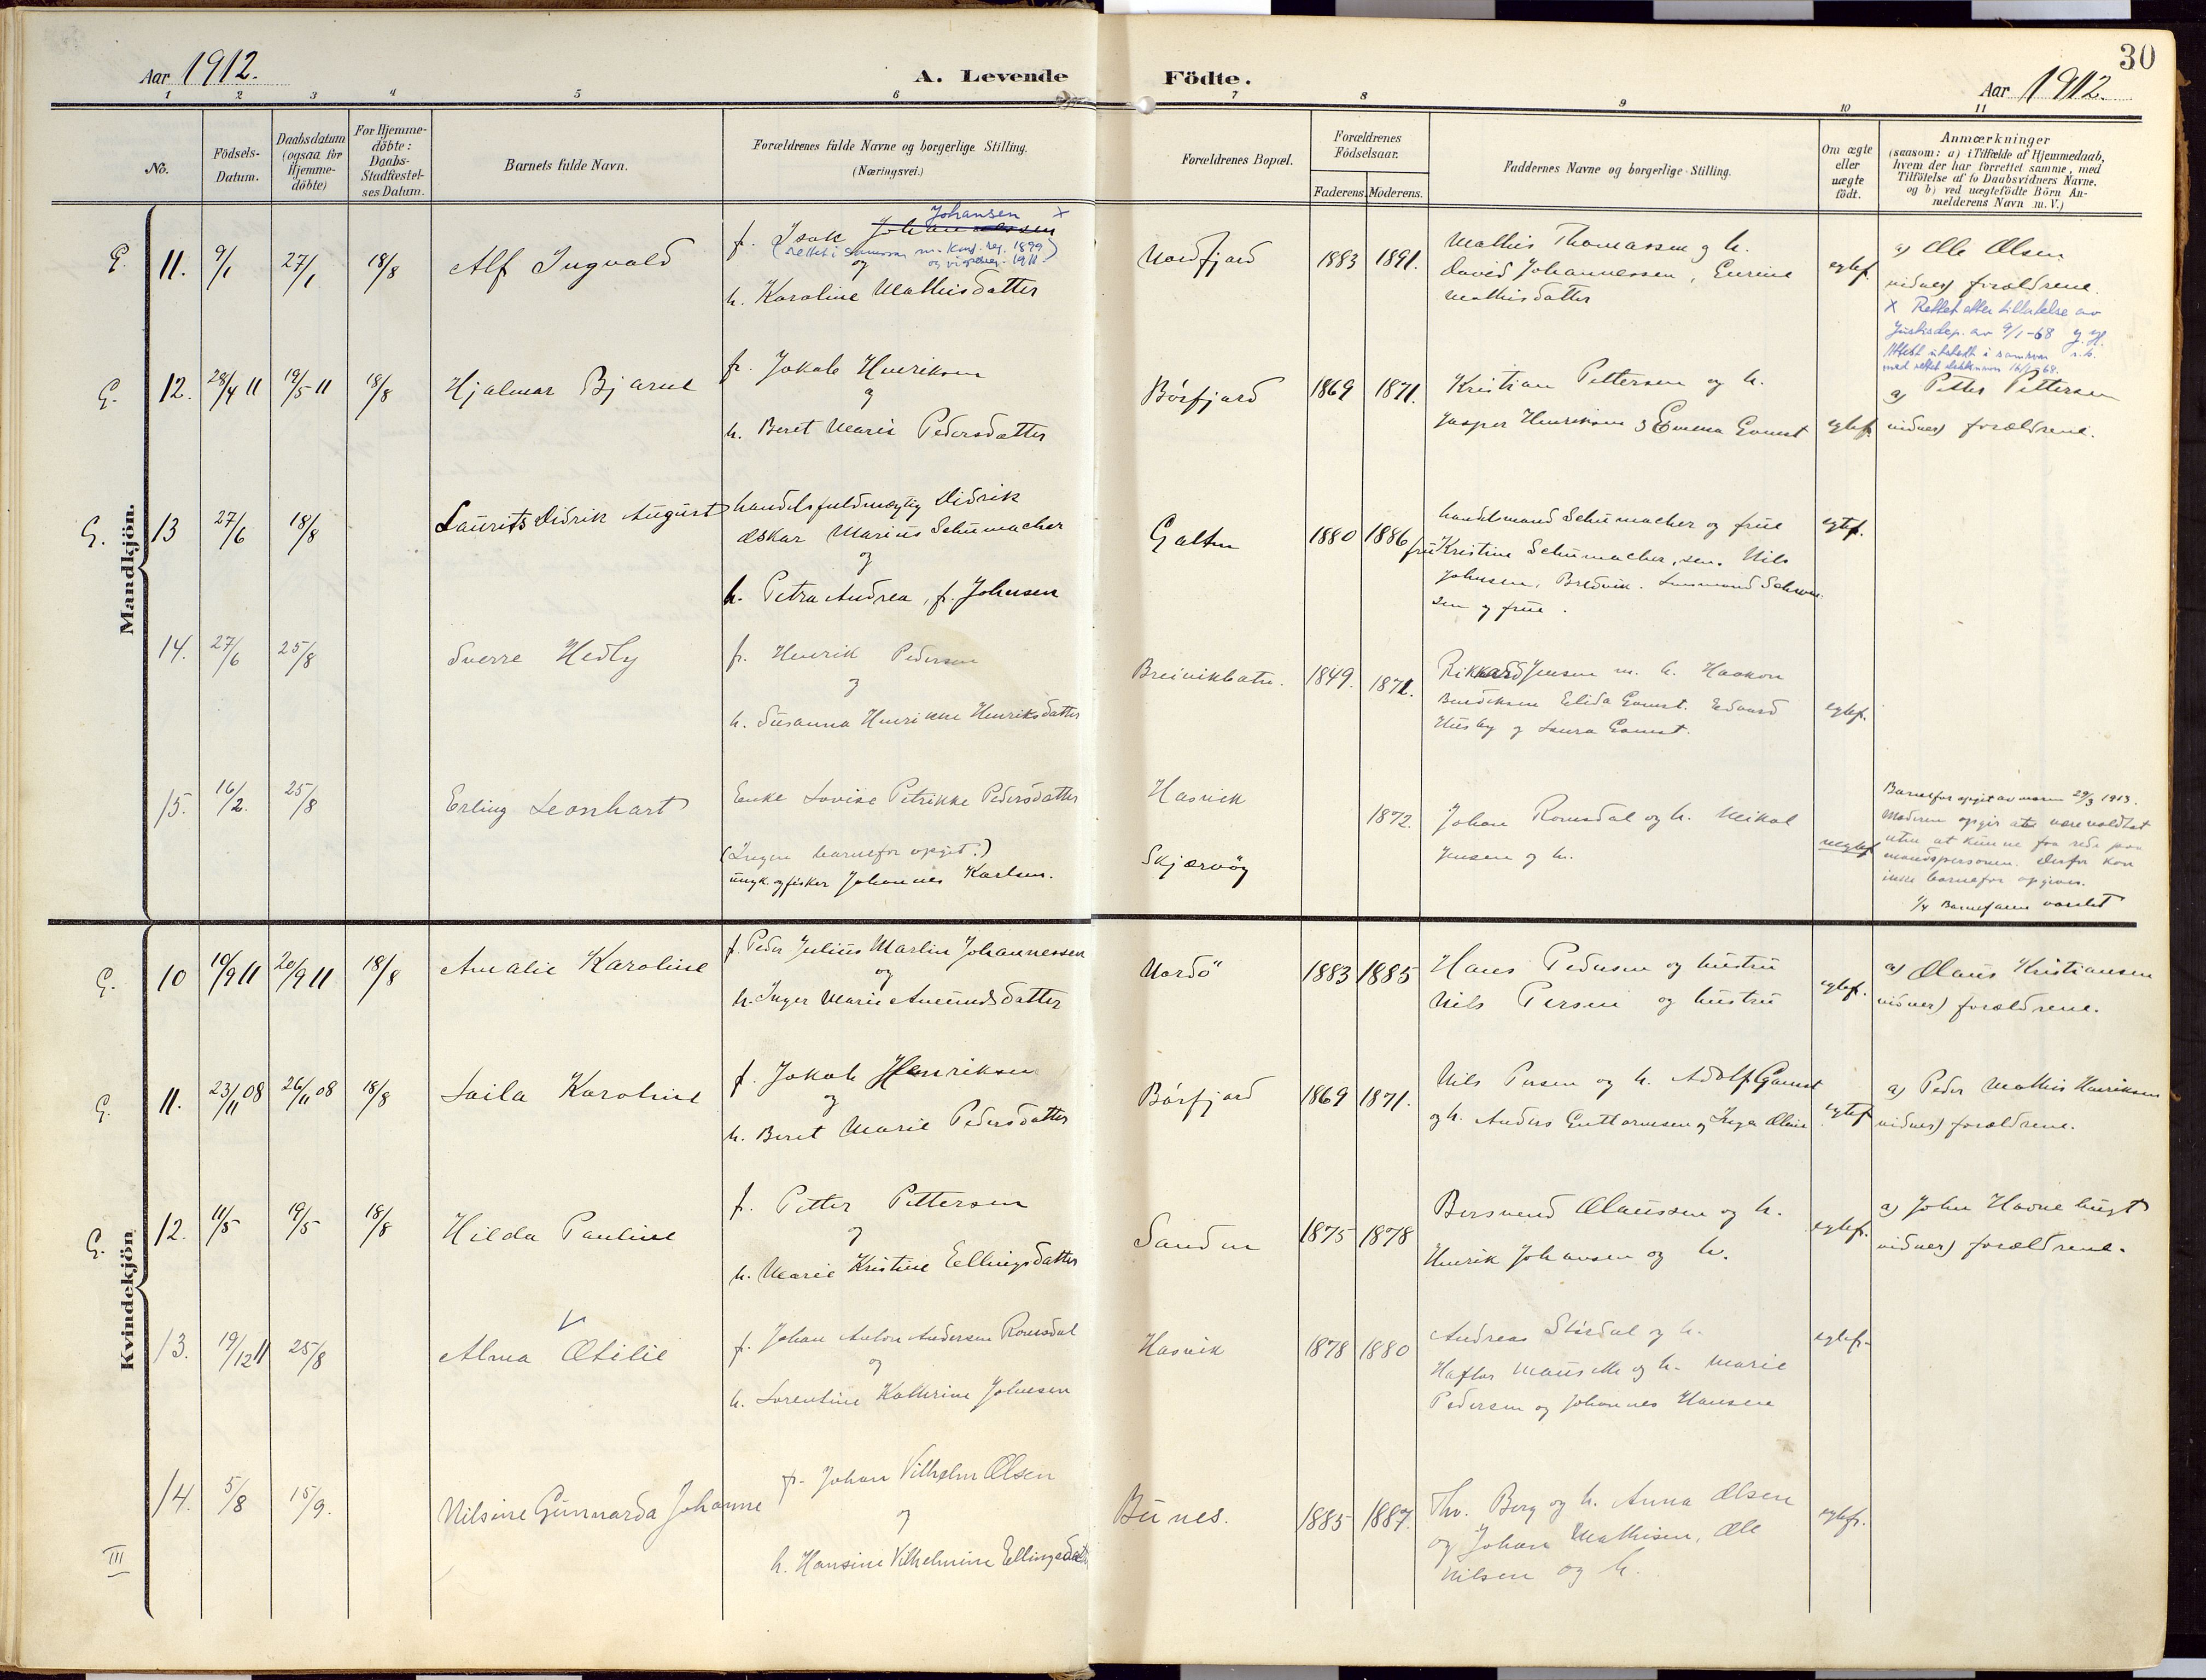 30
Aar 1912.
A. Levende Födte.
Aar 1912.
1 2 3 4 5 6 7 8 9 10 11
No.
Födsels-
Datum.
Daabsdatum
(ogsaa for
Hjemme-
döbte)
For Hjemme-
döbte:
Daabs-
Stadfæstel-
ses Datum.
Barnets fulde Navn.
Forældrenes fulde Navne og borgerlige Stilling.
(Næringsvei.)
Forældrenes Bopæl.
Forældrenes
Födselsaar.
Faderens. Moderens.
Faddernes Navne og borgerlige Stilling.
Om ægte
eller
uægte
födt.
Anmærkninger
(saasom: a) i Tilfælde af Hjemmedaab,
hvem der har forrettet samme, med
Tilföielse af to Daabsvidners Navne.
og b) ved uægtefödte Börn An-
melderens Navn m. V.)
Mandkjön.
G. 11. 9/1 27/1 18/8 Alf Ingvald
Johansen x
f. Isak
(rettet i samsvar m. konf. reg. 1899
og vigselreg. 1911.)
og
h. Karoline Mathisdatter
Nordfjord 1883 1891.
Mathis Thomassen og h.
David Johannessen, Eurine
Mathisdatter
egtef.
a) Ole Olsen
vidner) forældrene.
x Rettet etter tillatelse av
Justisdep. av 9/1-68
G. 12. 28/4 11 19/5-11 18/8 Hjalmar Bjarne
f. Jakob Henriksen
og
h. Beret Marie Pedersdatter
Börfjord 1869 1871.
Kristian Pettersen og h.
Jasper Henriksen og Emma Gamst egtef.
a) Petter Pettersen
vidner) forældrene.
G. 13 27/6 18/8 Laurits Didrik August
handelsfuldmægtig Didrik
Oskar Marius Schumacher
og
h. Petra Andrea, f. Johnsen
Galten 1880 1886
handelsmand Schumacher og frue
fru Kristine Schumacher, sen. Nils
Johnsen, Bredvik.
og frue.
egtf.
14. 27/6 25/8 Sverre Hedly
f. Henrik Pedersen
og
h. Susanna Henrikke Henriksdatter
Breivikbotn. 1849. 1871.
Rikkard Jensen m. h. Haakon
Bendiksen Elida Gamst. Edvard
Husby og Laura Gamst.
egtef.
15. 16/2. 25/8 Erling Leonhart
Enke Lovise Petrikke Pedersdatter
(Ingen barnefar opgit.)
ungk. og fisker Johannes Karlsen.
Hasvik
Skjærvöy
1872.
Johan Romsdal og h. Mikal
Jensen og h.
uegtef
Barnefar opgit av moren 29/3 1913.
Moderen opgir at være voldtat
uten at kunne faa rede paa
mandspersonen. Derfor kan
ikke barnefar opgives.
1/4 Barnefaren varslet
Kvindekjön
G. 10 19/9 11 20/9 11 18/8 Amalie Karoline
f. Peder Julius Martin Johannessen
og
h. Inger Marie Amundsdatter
Nordö 1883 1885
Hans Pedersen og hustru
Nils Persen og hustru
egtef.
a) Olaus Kristiansen
vidner) forældrene.
G. 11. 23/11 08 26/11 08 18/8 Laila Karoline
f. Jakob Henriksen
og
h. Beret Marie Pedersdatter
Börfjord 1869 1871.
Nils Persen og h. Adolf Gamst
og h. Anders Guttormsen og Inga Oline
egtef
a) Peder Mathis Henriksen
vidner) forældrene.
G. 12. 11/5 19/5 18/8 Hilda Pauline
f. Petter Pettersen
og
h. Marie Kristine Ellingsdatter
Sanden 1875 1878
Bersvend Olaussen og h.
Henrik Johansen og h.
egtef.
a) John
vidner) forældrene.
13. 19/12 11 25/8 Alma Otilie
f. Johan Anton Andersen Romsdal
og
h. Lorentine Kathrine Johnsen
Hasvik 1878 1880
Andreas Stördal og h.
Haftor og h. Marie
Pedersen og Johannes Hansen
egtef.
14. 5/8 15/9. Nilsine Gunnarda Johanne
f. Johan Vilhelm Olsen
og
h. Hansine Vilhelmine Ellingsdatt
Bunes. 1885 1887.
Thv. Berg og h. Anna Olsen
og Johan Mathisen, Ole
Nilsen og h.
egtef.
III